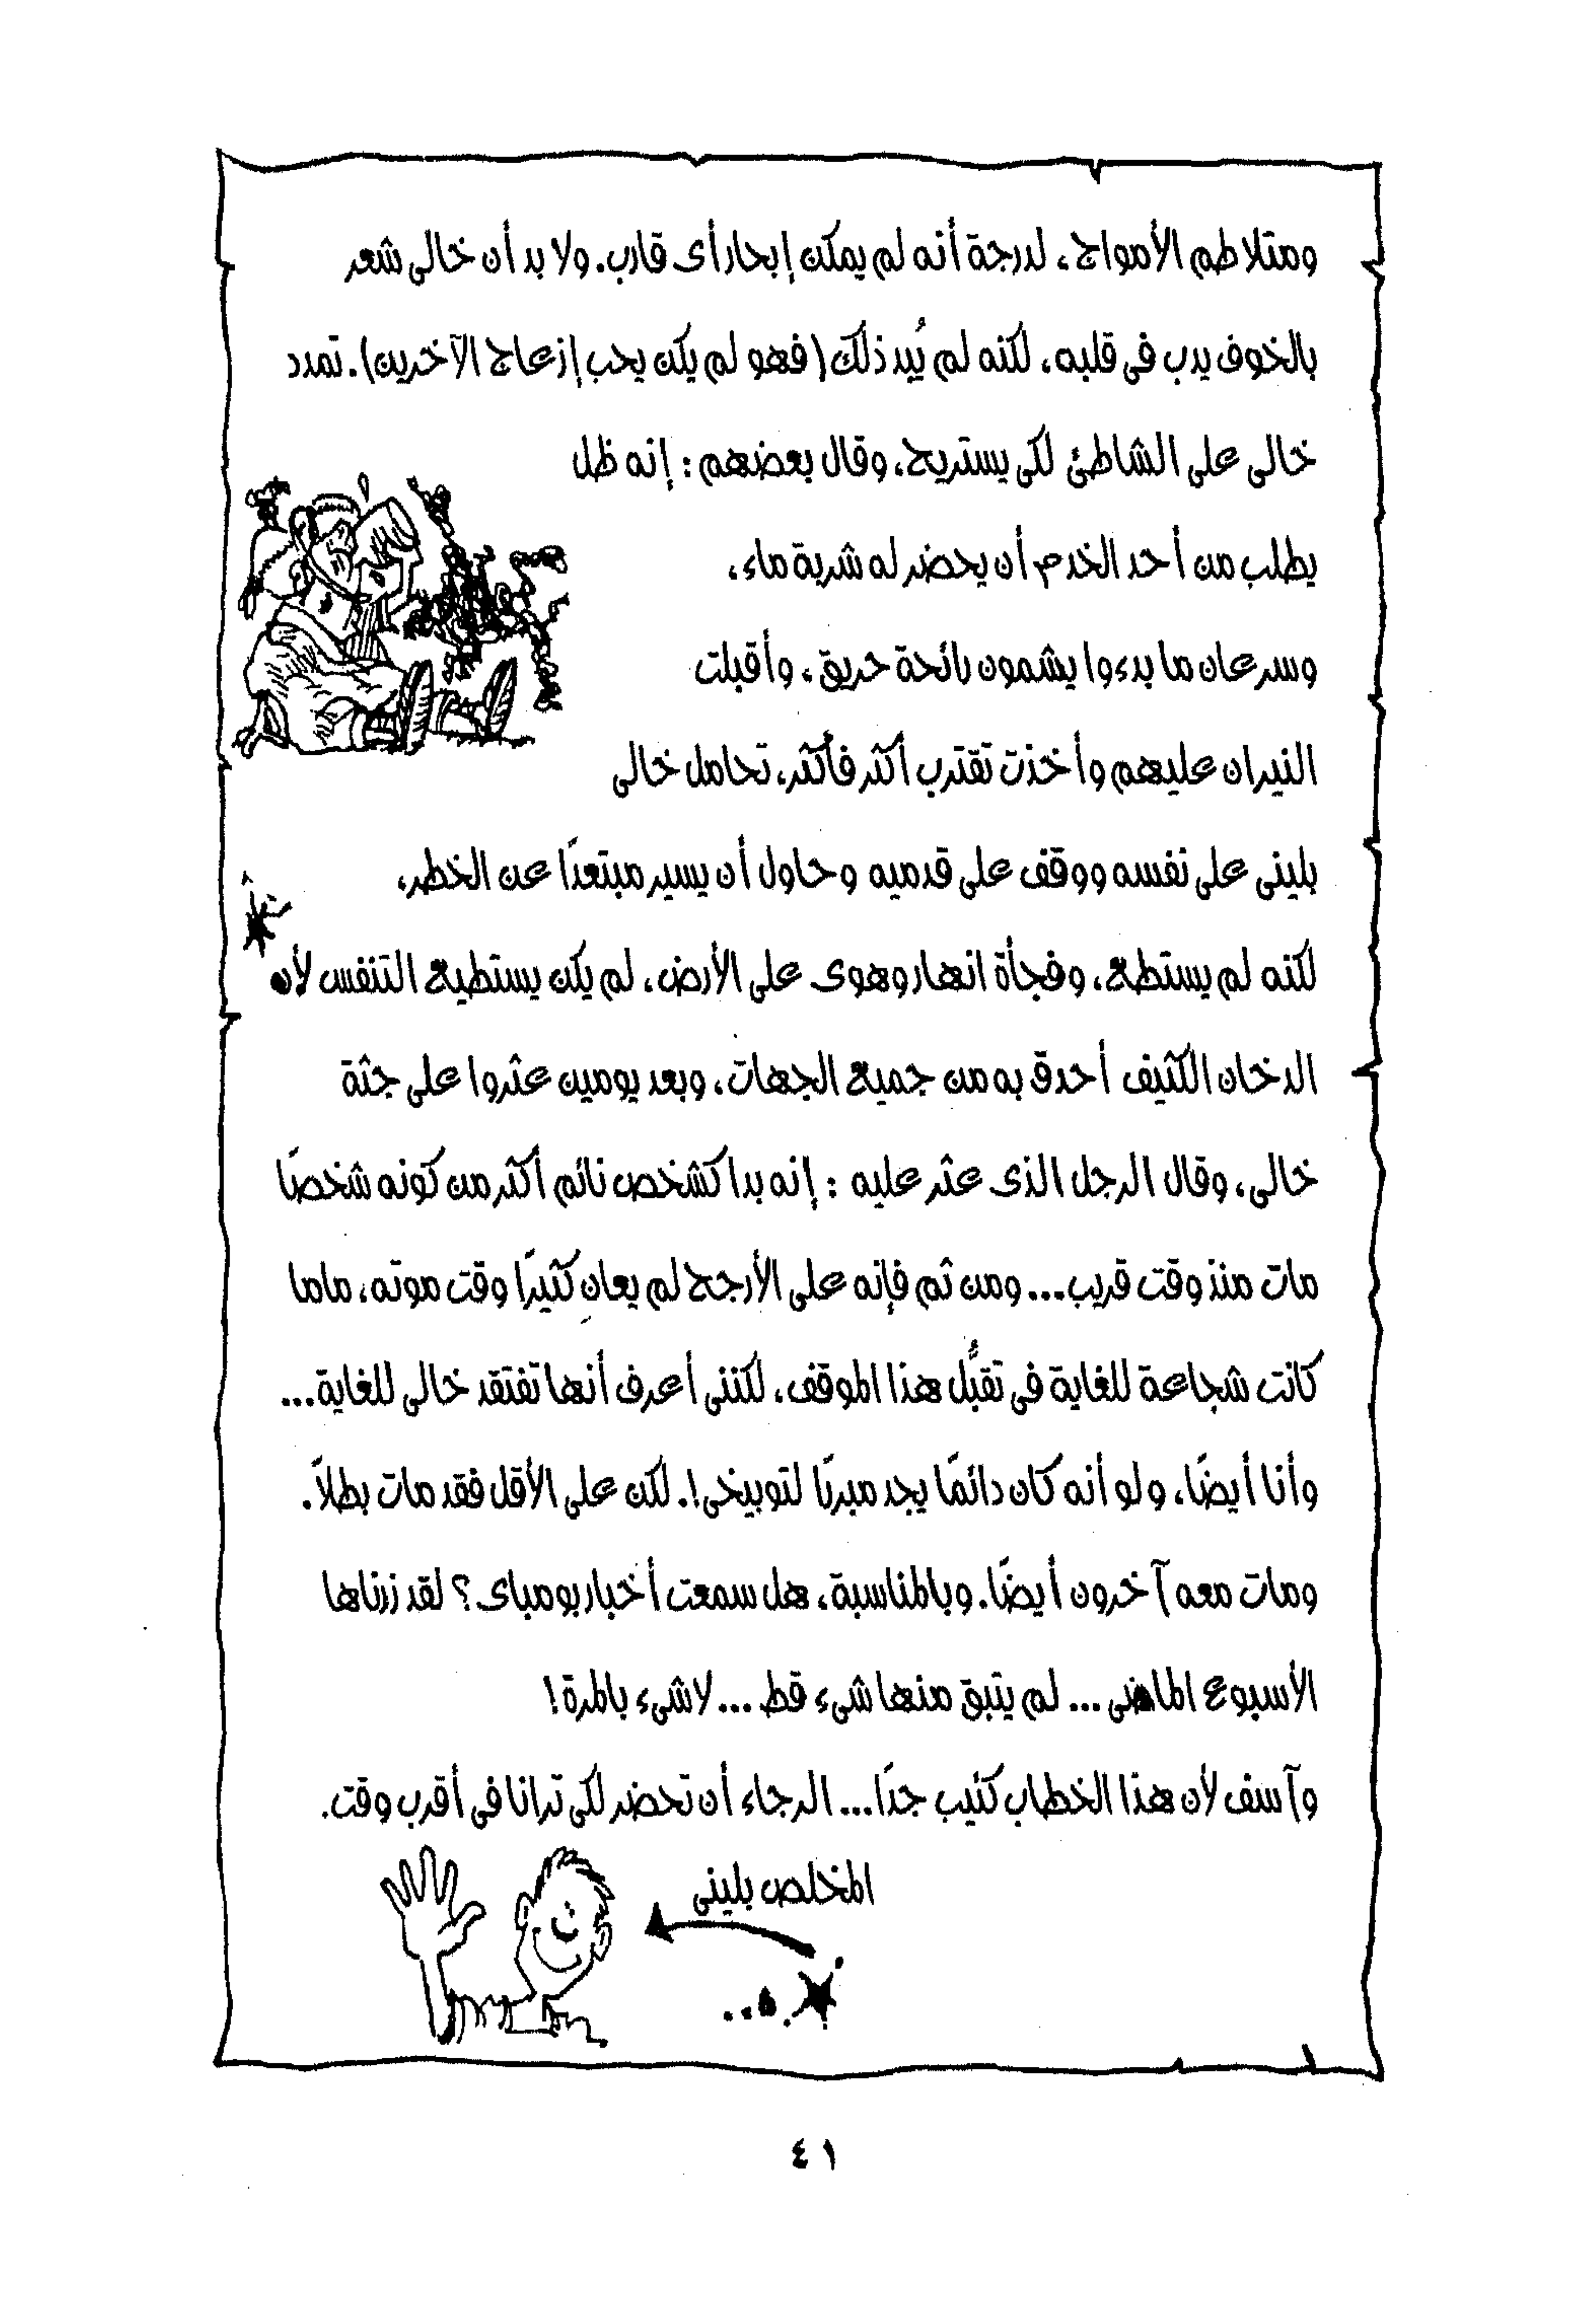 ومتلاطم الأمواج، لدرجة أنه لم يمكن إبحار أى قارب. ولا بد أن خالى شعر
بالخوف يدب فى قلبه، لكنه لم يُبد ذلك (فهو لم يكن يحب إزعاج الآخرين). تمدد
خالى على الشاطئ لكى يستريح، وقال بعضهم: إنه ظل
يطلب من أحد الخدم أن يحضر له شربة ماء،
وسرعان ما بدءوا يشمون رائحة حريق، وأقبلت
النيران عليهم وأخذت تقترب أكثر فأكثر، تحامل خالى
بلينى على نفسه ووقف على قدميه وحاول أن يسير مبتعدًا عن الخطر،
لكنه لم يستطع، وفجأة انهار وهوى على الأرض، لم يكن يستطيع التنفس لأن
الدخان الكثيف أحدق به من جميع الجهات، وبعد يومين عثروا على جثة
خالى، وقال الرجل الذى عثر عليه : إنه بدا كشخص نائم أكثر من كونه شخصًا
مات منذ وقت قريب... ومن ثم فإنه على الأرجح لم يعان كثيرًا وقت موته، ماما
كانت شجاعة للغاية فى تقبُّل هذا الموقف، لكننى أعرف أنها تفتقد خالى للغاية...
وأنا أيضًا، ولو أنه كان دائمًا يجد مبررًا لتوبيخى!. لكن على الأقل فقد مات بطلاً.
ومات معه آخرون أيضًا. وبالمناسبة، هل سمعت أخبار بومباى؟ لقد زرناها
الأسبوع الماضى ... لم يتبق منها شىء قط ... لا شىء بالمرة!
وآسف لأن هذا الخطاب كئيب جدًا... الرجاء أن تحضر لكى ترانا فى أقرب وقت.
المخلص بلينى
٤١